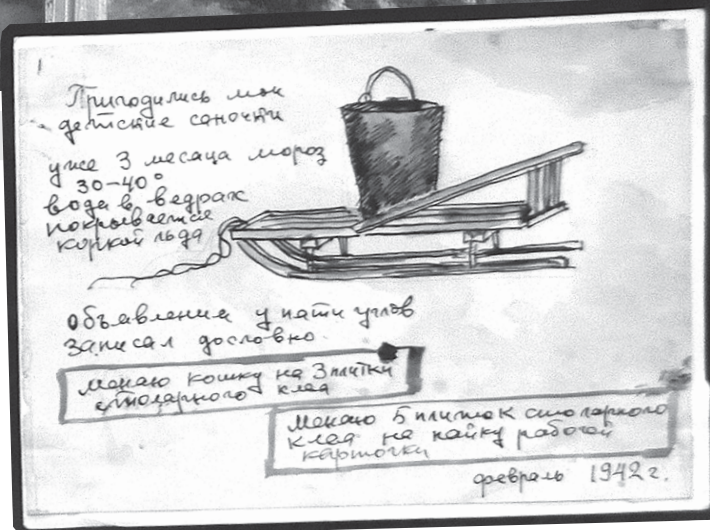 Пригодились мои
детские саночки
уже 3 месяца мороз
30-40°
вода в ведрах
покрывается
коркой льда
объявления у пяти углов
записал дословно.
меняю кошку на 3 плитки
столярного клея
меняю 5 плиток столярного
клея на пайку рабочей
карточки
февраль 1942 г.